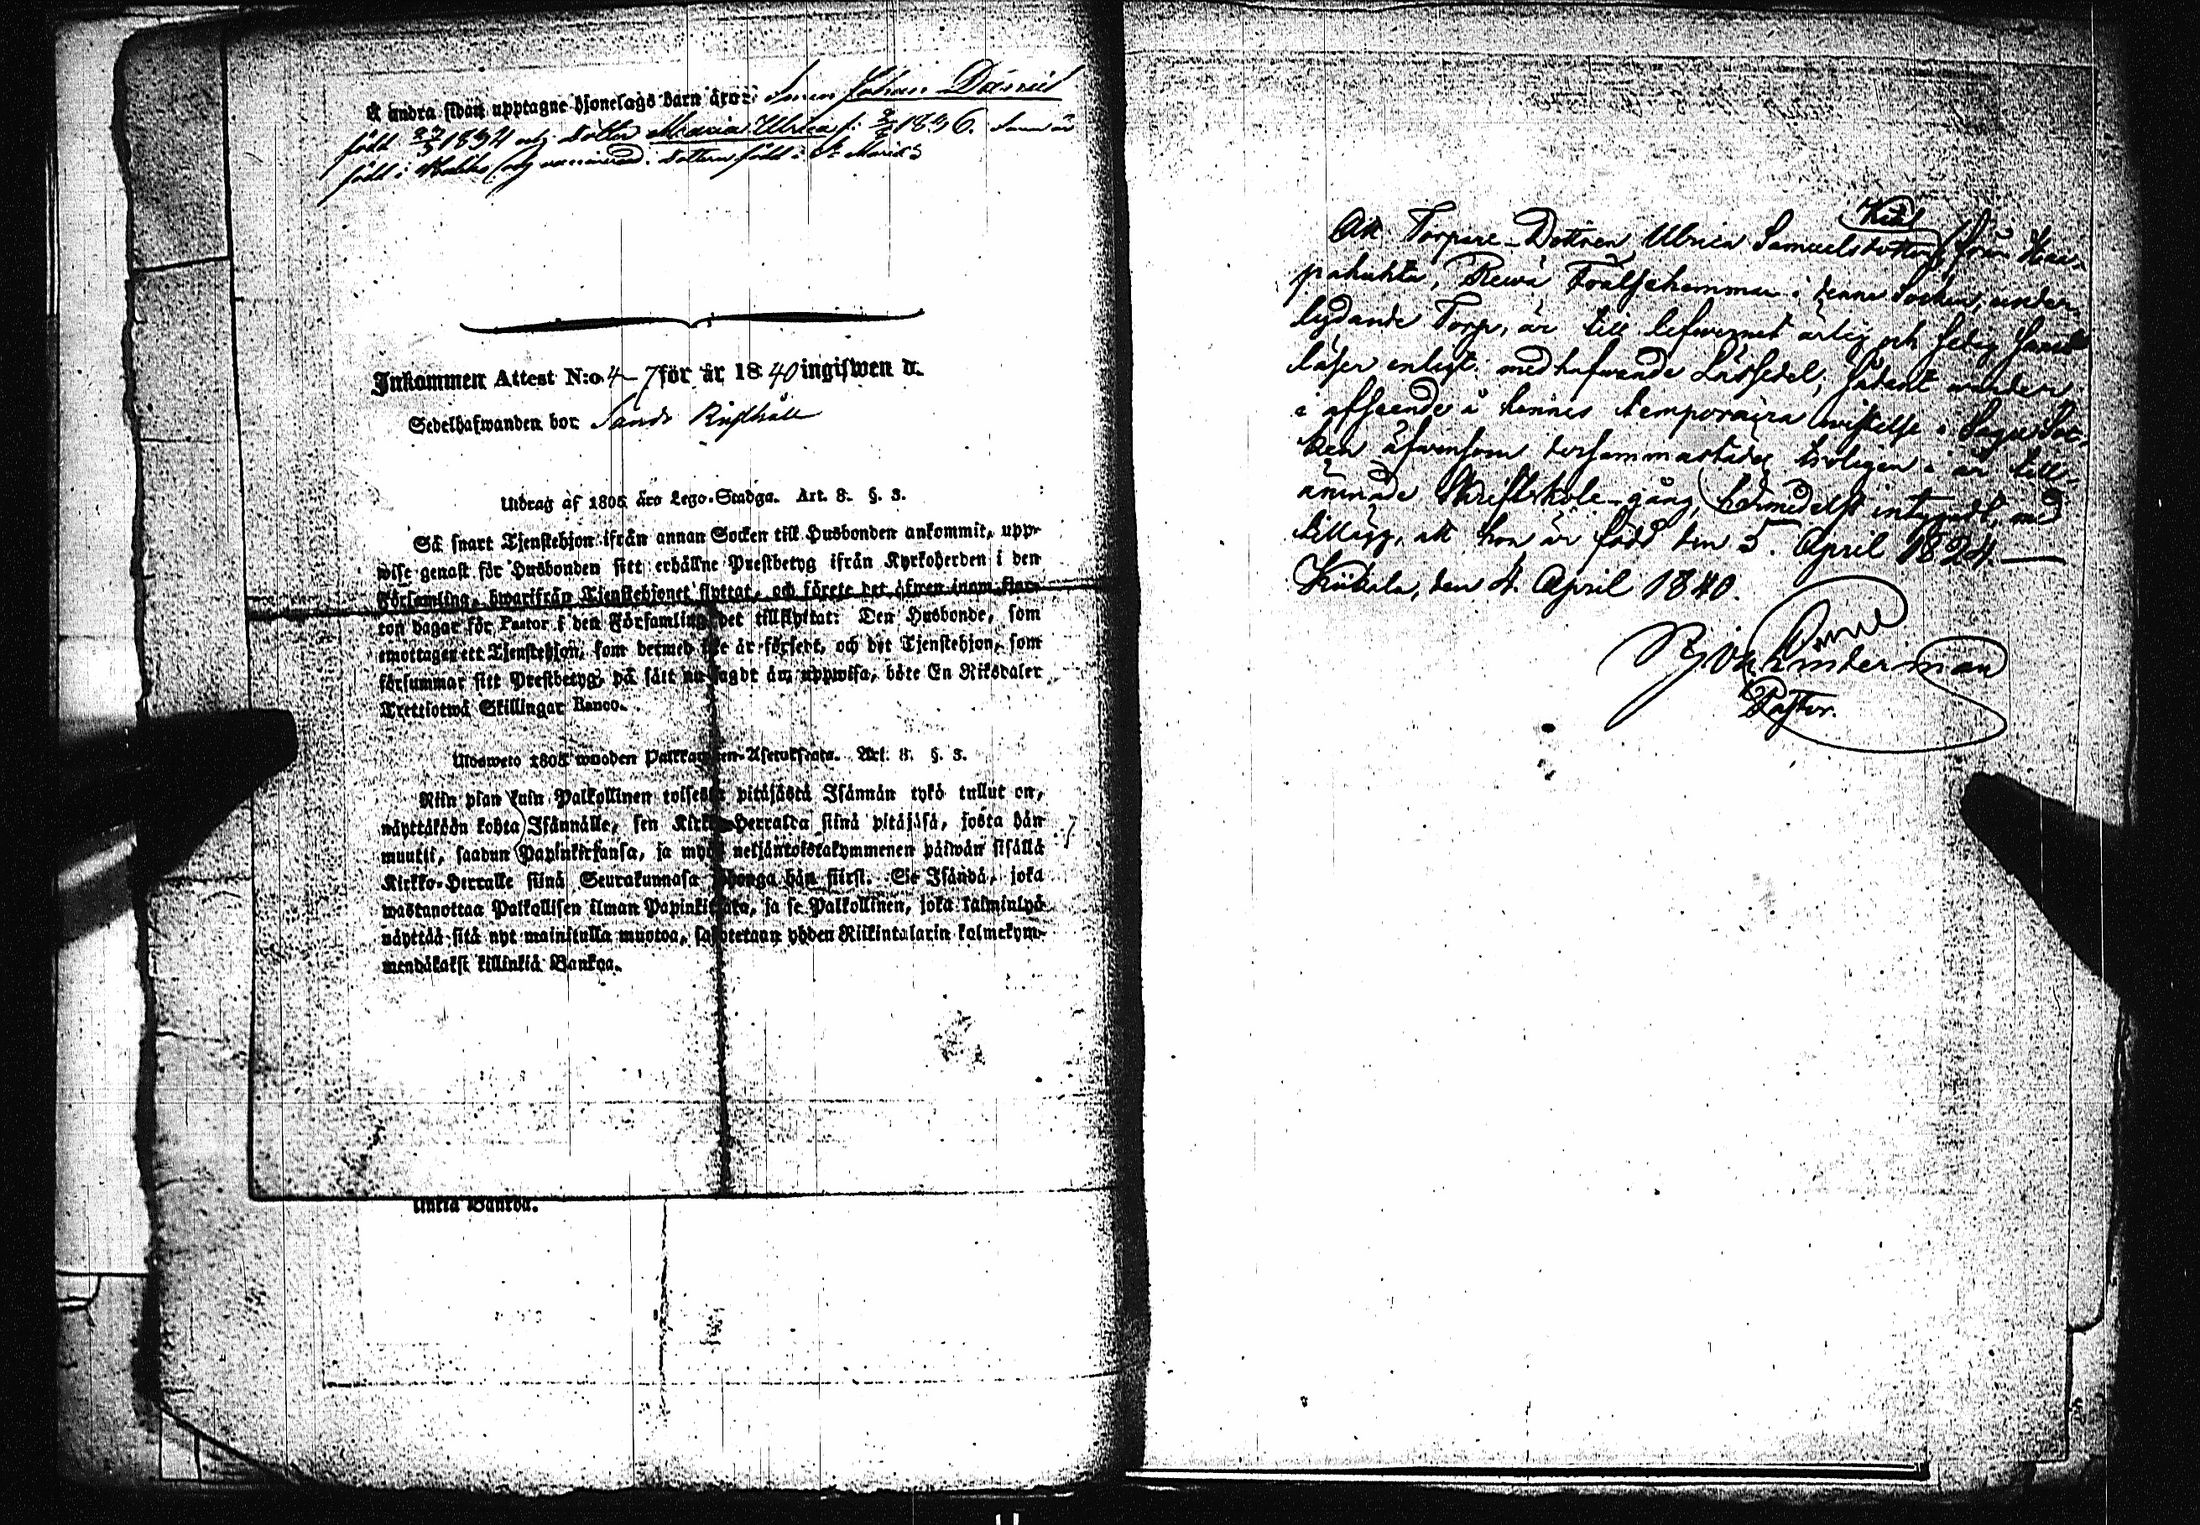 Å andra sidan upptagne hjonelags barn äro: Sonen Johan Daniel
född 27/5 1834 och dottren Maria Ulrica f: 1836. Sonen är
född i vaccinerad. dottren född i St Marie
Inkommen Attest N:o 4-7 för år 1840 ingifwen d.
Sedelhafwanden bor Rusthåll
Utdrag af 1805 års Lego-Stadga. Art. 8. §. 3.
Så snart Tjenstehjon ifrån annan Socken till Husbonden ankommit, upp-
wise genast för Husbonden sitt erhållne Prestbetyg ifrån Kyrkoherden i den
Församling, hwarifrån Tjenstehjonet flyttat, och förete det äfwen inom fjor-
ton dagar för Pastor i den Församling det tillflyttat: Den Husbonde, som
emottager ett Tjenstehjon, som dermed är försedt, och det Tjenstehjon, som
försummar sitt Prestbetyg, på sätt nu sagdt är, uppwisa, böte En Riksdaler
Trettiotwå Skillingar Banco.
Ulosweto 1805 wuoden Palkkawäen-Asetuksesta. Art. 8. §. 3.
Niin pian kuin Palkollinen toisesta pitäjästä Isännän tykö tullut on,
näyttäköön kohta Isännälle, sen Kirkko-Herralta siinä pitäjäsä, josta hän
muutti, saadun Papinkirjansa, ja myös neljäntoistakymmenen päiwän sisällä
Kirkko-Herralle siinä Seurakunnasa johonga hän siirsi. Se Isändä, joka
wastanottaa Palkollisen ilman Papinkirjata, ja se Palkollinen, joka laiminlyö
näyttää sitä nyt mainitulla muotoa, sakotetaan yhden Riikintalarin kolmekym-
mendäkaksi killinkiä Bankoa.
linkiä Bankoa.
Att Torpare-Dottren Ulrica Samuelsdotter från Haa-
pahuhta, Rewä Frälsehemman i denne Socken, under-
lydande Torp, är till lefwernet ärlig och sedig samt
läser enligt medhafwande Läsesedel, sådant warder,
i afseende å hennes temporaira wistelse i Sagu Soc-
ken äfwensom dersammastädes troligen i år till-
ämnade Skriftskole-gång, härmedelst intygadt, med
tillägg, att hon är född den 5. April 1824.
Kiikala, den 4. April 1840.
Linderman
Pastor.